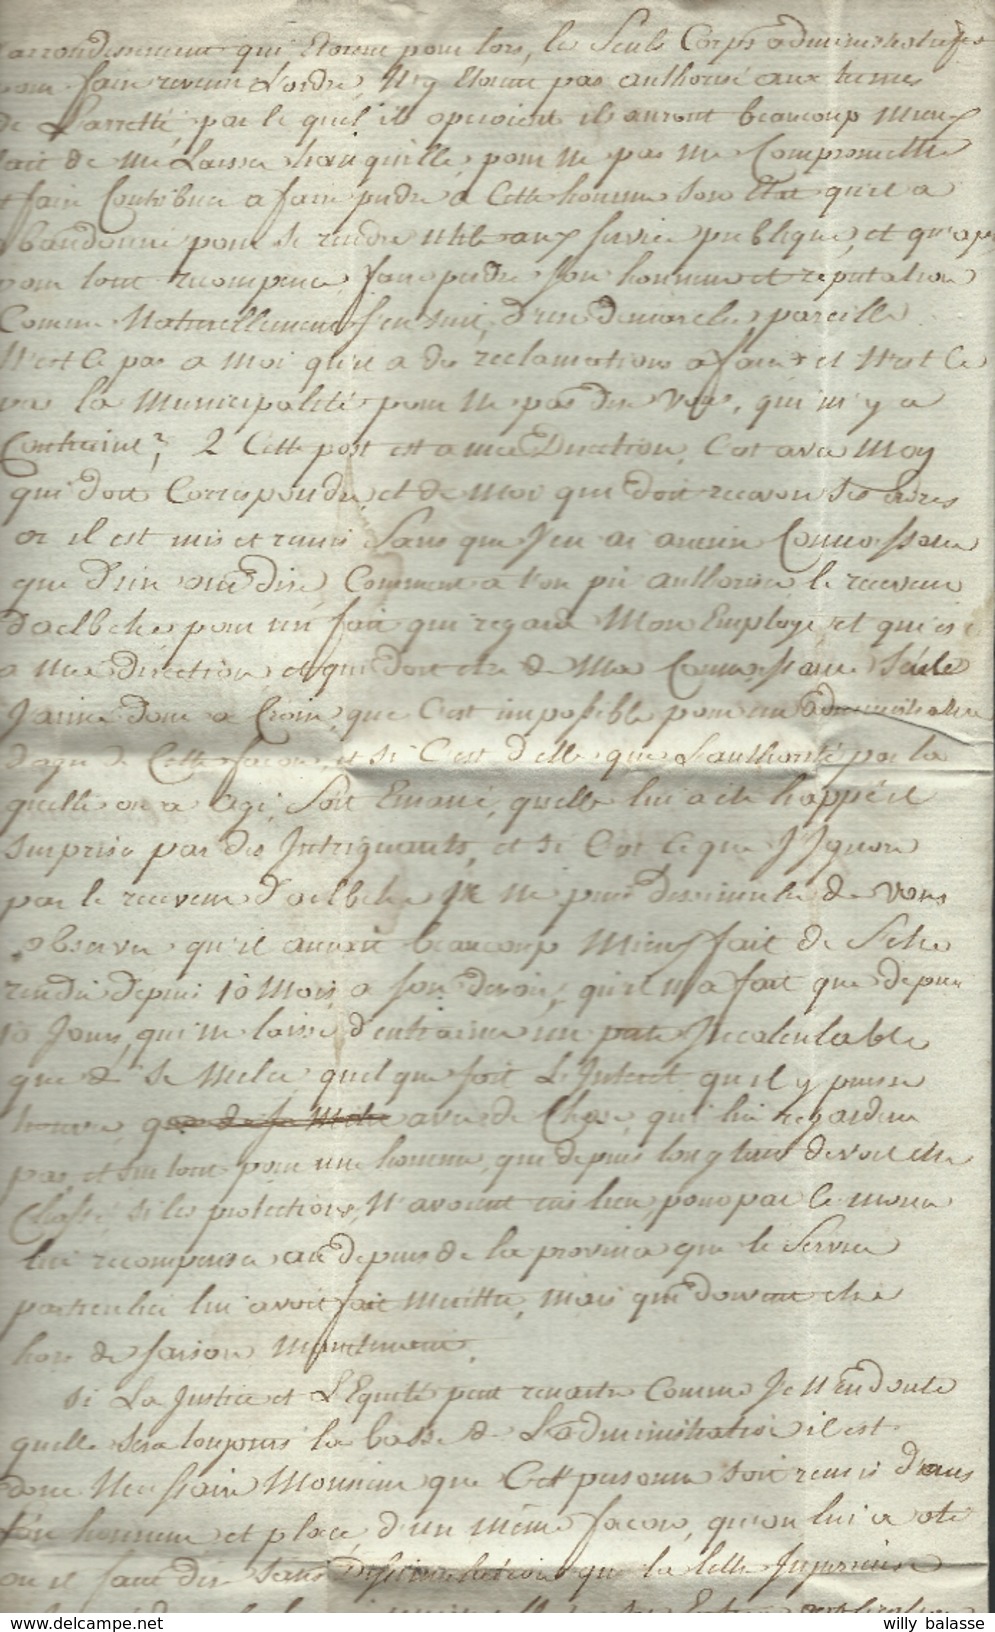 arrondissement qui Etoient pour lors, les Seuls Corps administratifs
pour faire revenir L'ordre, N'y Etoient pas authorisé aux termes
de L'arretté, par le quel ils operoient ils auront beaucoup mieux
fait de me Laisser tranquille, pour ne pas me Compromettre
et faire Contribuer a faire perdre a Cette homme Son Etat qu'il a
abandonné pour se rendre utile aux service publique, et
pour tout recompence, faire perdre son honneur et reputation
Comme Naturellement s'en suit, d'une demarche pareille
N'est Ce pas a Moi qu'il a des reclamations a faire et N'est Ce
pas la Municipalité pour Ne pas dire vous, qui m'y a
Contraint? 2 Cette post est a ma Direction, C'est avec Moy
qui doit Correspondre, et de Moi que doit recevoir Ses ordres
or il est mis et remis Sans que J'en ai aucun Connoissance
que d'un oui dire, Comment a t'on pu authoriser le receveur
d'aelbeke pour un fait qui regarde Mon Employé et qui est
a ma direction et qui doit etre de Ma Connoissance Seule
J'aime donc a Croire, que C'est impossible pour un administration
d'agir de Cette façon, et si C'est d'elle que L'authorité par la
quelle on a agi, Soit Emané, quelle lui a été happé et
surprise par des Intriguants, et si C'est Ce que J'Ignore
par le receveur d'aelbeke je ne puis dissimuler de vous
observer qu'il auroit beaucoup Mieux fait de S'etre
rendu depuis 10 Mois a son devoir, qu'il n'a fait que depuis
10 Jours, qui ne laisse d'entrainer un perte Incalculable
que de se Meler quelque soit L'Interet qu'il y puisse
trouver, que de se Meler avec de Chose, qui lui regardent
pas, et surtout pour une homme, que depuis longtems devoit etre
Chassé, si les protections, N'avoient eus lieu pour par le moien
lui recompenser au depens de la province que le Service
particulier lui avoit fait Meritter, mais qui doivent etre
hors de saison Maintenant,
Si La Justice et L'Equité peut renaitre Comme Je N'En doute
quelle sera toujours la base de L'administration il est
donc Necessaire Monsieur que Cette personne soit remis dans
son honneur et place, d'un Même facon, qu'on lui a oté
ou il faut dire sans Dissimulation que la lettre Injurieuse
willy balasse